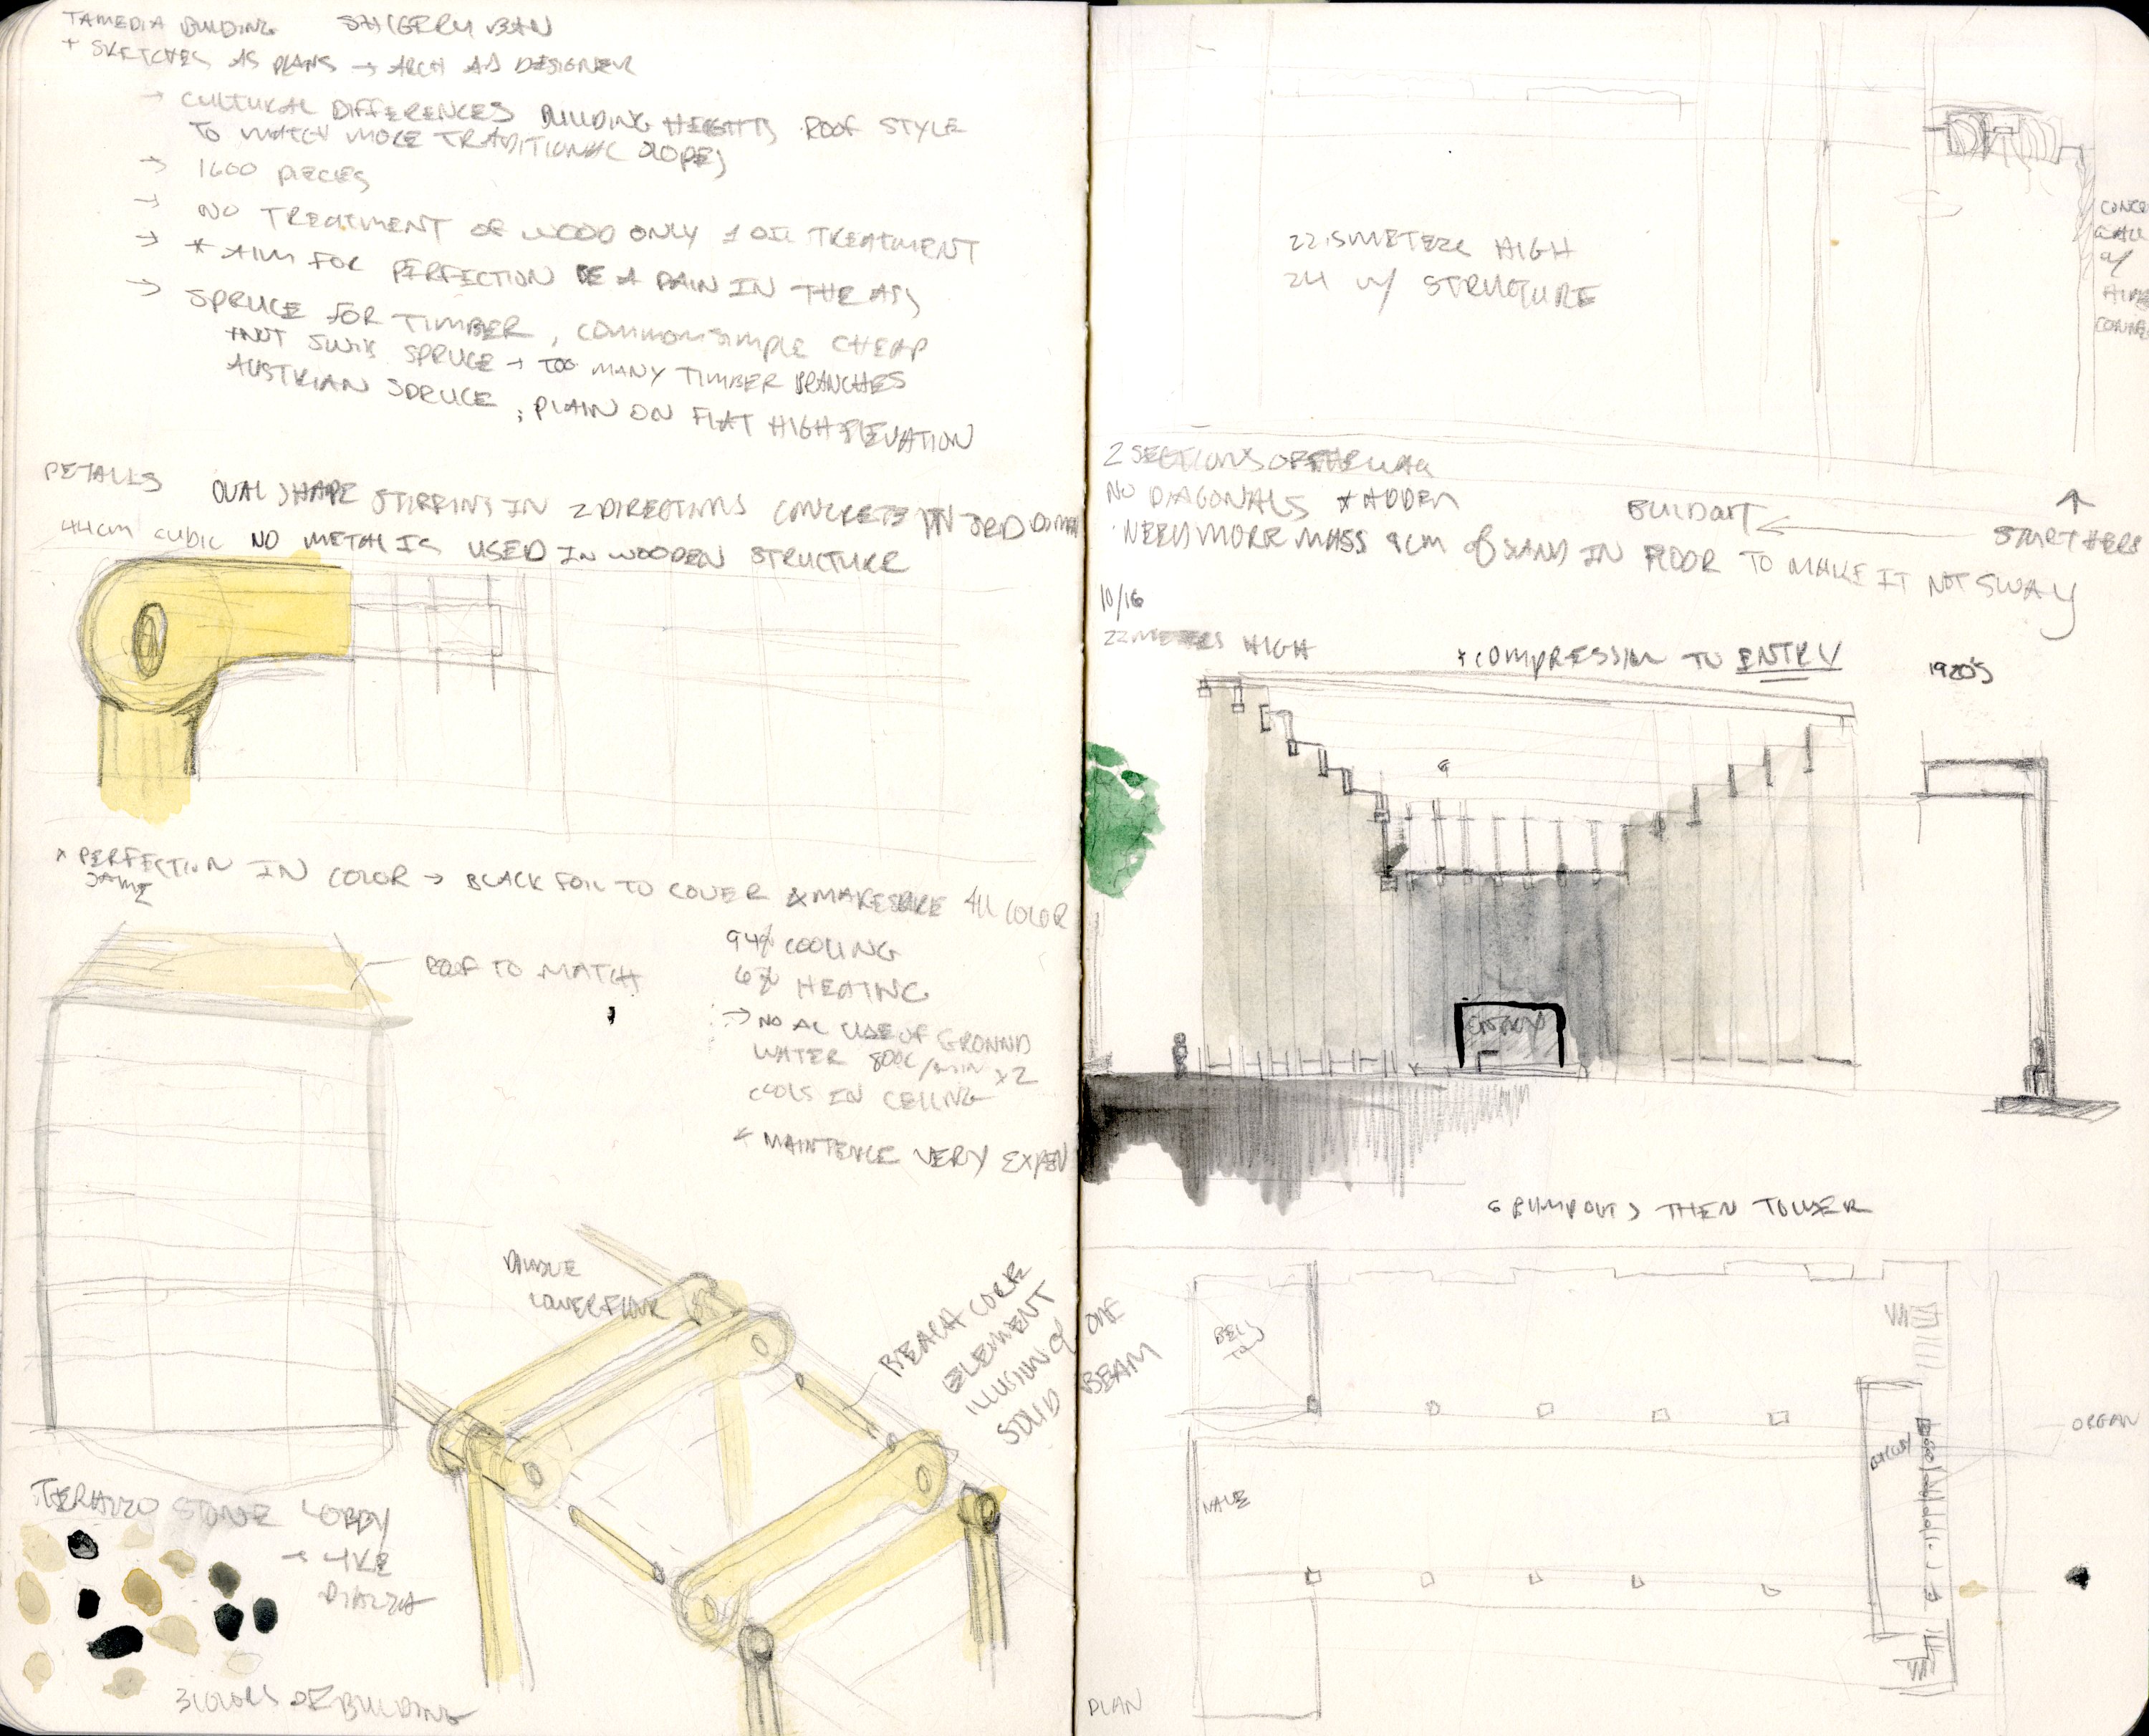 TAMEDIA BUILDING SHIGERU BAN
+ SKETCHES AS PLANS → ARCH AS DESIGNER
→ CULTURAL DIFFERENCES BUILDING HEIGHTS ROOF STYLE
TO MATCH MORE TRADITIONAL SLOPES
→ 1600 PIECES
→ NO TREATMENT OF WOOD ONLY 1 OIL TREATMENT
→ * AIM FOR PERFECTION BE A PAIN IN THE ASS
→ SPRUCE FOR TIMBER, COMMON SIMPLE CHEAP
*NOT SWISS SPRUCE → TOO MANY TIMBER BRANCHES
AUSTRIAN SPRUCE; PLAIN ON FLAT HIGH ELEVATION
DETAILS OVAL SHAPE IN 2 DIRECTIONS CONCRETE IN 3RD
44CM CUBIC NO METAL IS USED IN WOODEN STRUCTURE
* PERFECTION IN COLOR → BLACK FOIL TO COVER & MAKE SURE ALL COLOR
SAME
ROOF TO MATCH
94% COOLING
6% HEATING
→ NO AC USE OF GROUND
WATER 800L/MIN x2
COOLS IN CEILING
* MAINTENCE VERY EXPEN
LOWER FLOUR
BEACH CORE
ELEMENT
ILLUSION of ONE
SOLID BEAM
TERAZZO STONE LOBBY
→ LIKE
PIAZZA
3 COLORS OF BUILDING
22.5 METERS HIGH
24 w/ STRUCTURE
CONC
w/
CONNE
2 SECTIONS OF
NO DIAGONALS * ADDEN
BUILD OUT
START HERE
• NEED MORE MASS 9CM of SAND IN FLOOR TO MAKE IT NOT SWAY
10/16
22 METERS HIGH
* COMPRESSION TO ENTRY
1920'S
ENTRY
6 BUMPOUTS THEN TOWER
BELL
TO
NAVE
BALCONY
ORGAN
PLAN